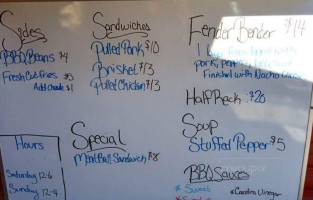 Sides
BBQ Beans $4
Fresh Cut Fries $5
Add Cheese $1
Hours
Saturday 12-6
Sunday 12-4
Sandwiches
Pulled Pork $10
Brisket $13
Pulled Chicken $13
Special
Meat Ball Sandwich $8
Fender Bender $14
1
topped with
pork,
Finished with Nacho Cheese
Half Rack $20
Soup
Stuffed Pepper $5
BBQ Sauces
*Sweet
*Carolina Vinegar